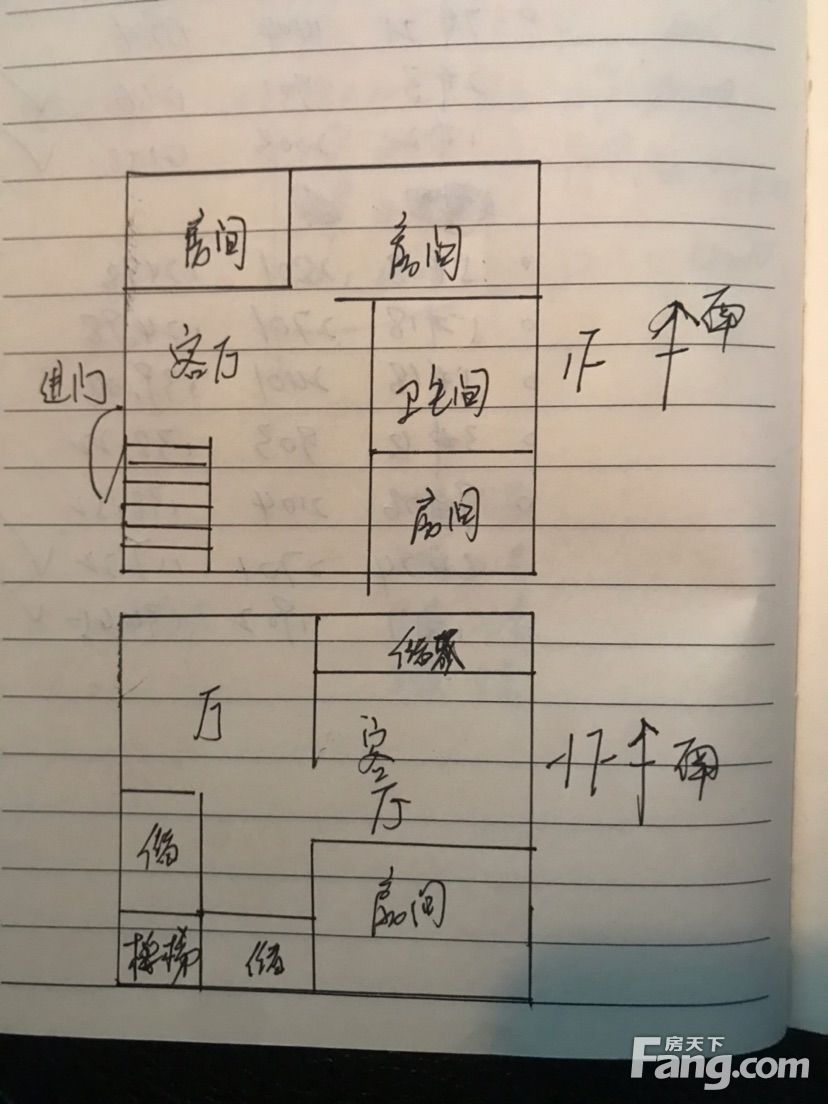 房间
房间
南
客厅
进门
卫生间
下
房间
储藏
厅
客
厅
南
储
房间
楼梯
储
房天下
Fang.com